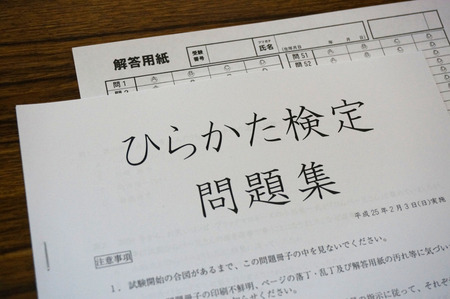 解答用紙
受験番号
フリガナ
氏名
問1
問2
問51
問52
ひらかた検定
問題集
平成25年2月3日(日)実施
注意事項
1. 試験開始の合図があるまで、この問題冊子の中を見ないでください。
子の印刷不鮮明、ページの落丁・乱丁及び解答用紙の汚れ等に気づい
せください。
指示に従って、それぞ